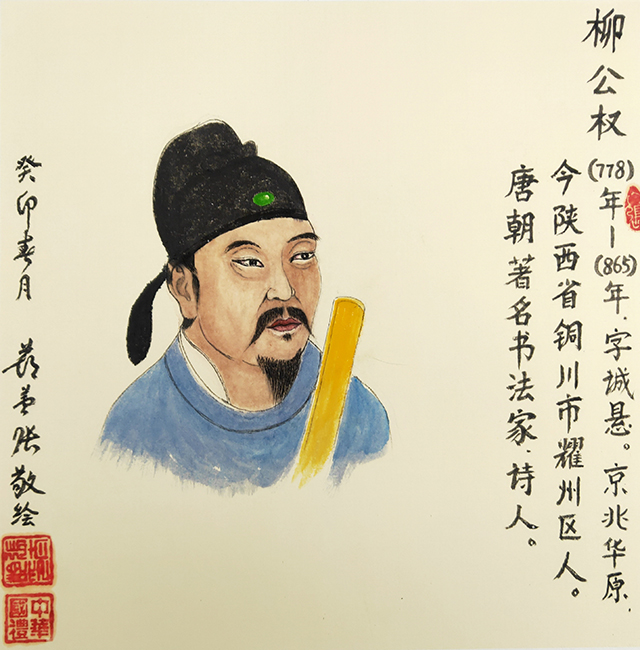 柳公权
(778)年—(865)年.字城悬。京兆华原.
今陕西省铜川市耀州区人。
唐朝著名书法家.诗人。
張
癸卯春月
张敬绘
中華國禮